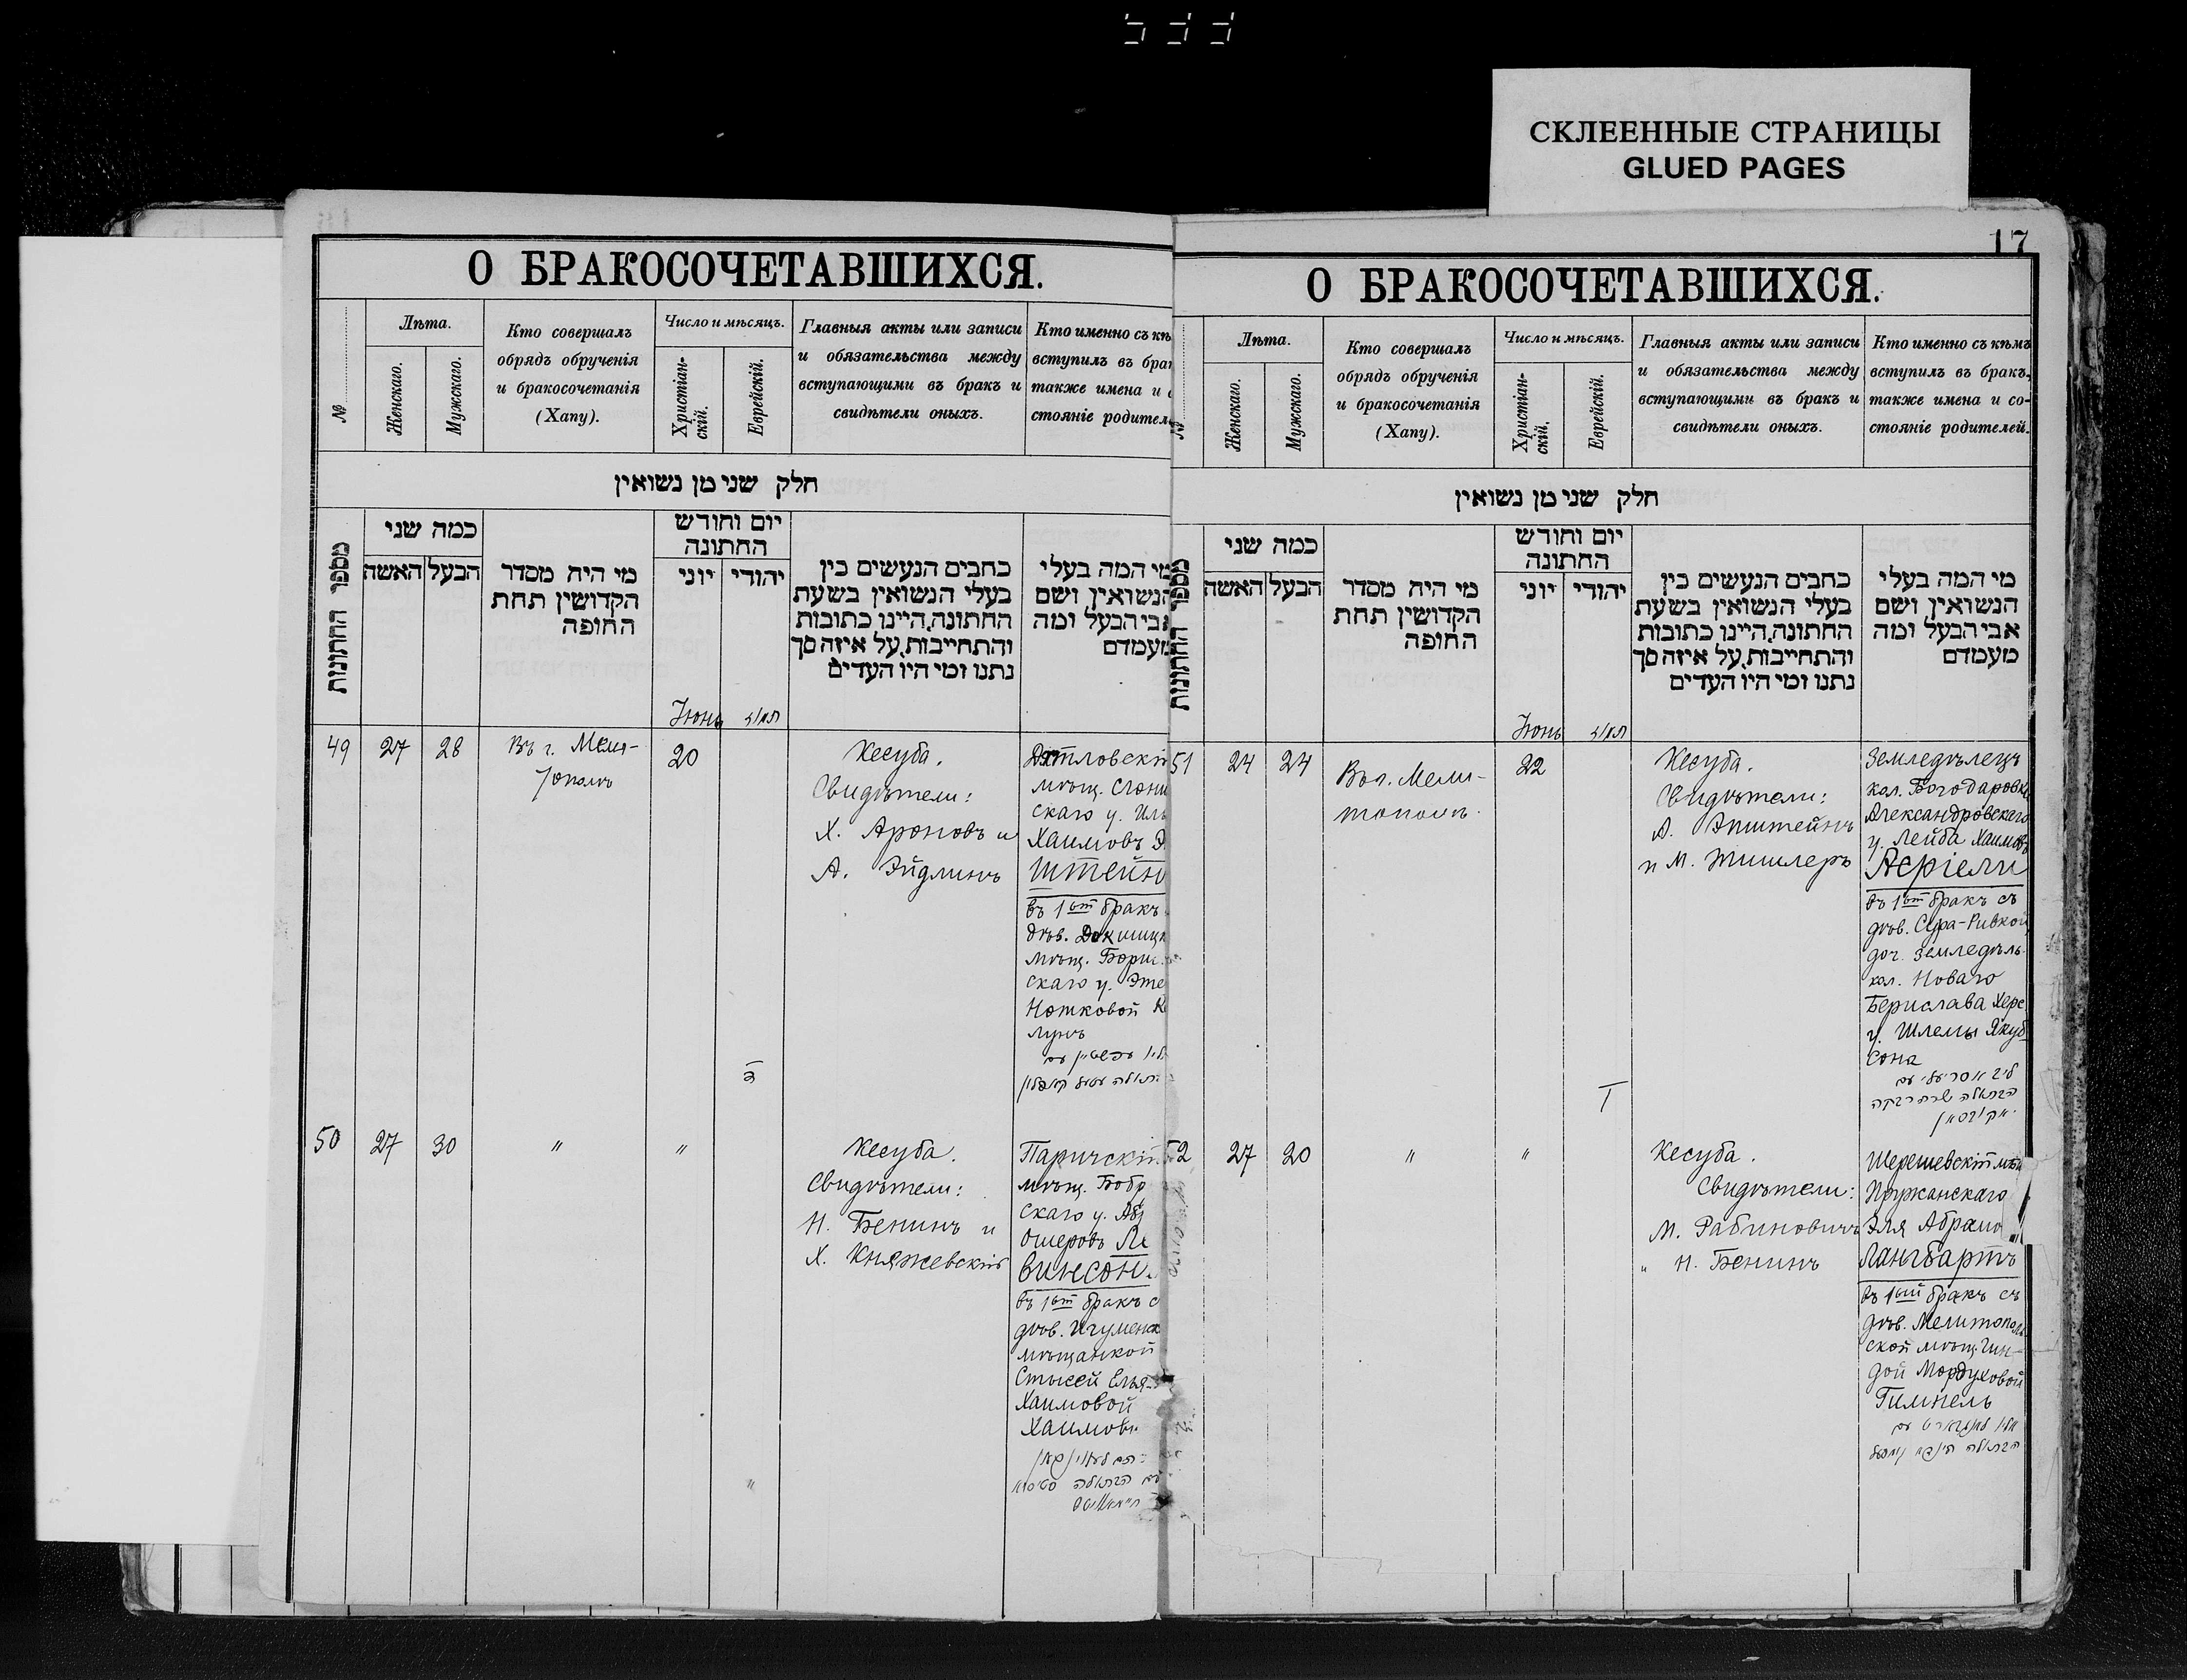 СКЛЕЕННЫЕ СТРАНИЦЫ
GLUED PAGES
О БРАКОСОЧЕТАВШИХСЯ.
№
Лѣта.
Женскаго.
Мужскаго.
Кто совершалъ
обрядъ обрученія
и бракосочетанія
(Хапу).
Число и мѣсяцъ.
Христіан-
скій.
Еврейскій.
Главныя акты или записи
и обязательства между
вступающими въ бракъ и
свидѣтели оныхъ.
Кто именно съ кѣ
вступилъ въ бра
также имена и с
стояніе родител
חלק שני מן נשואין
מספר החתונות
כמה שני
האשה
הבעל
מי היה מסדר
הקדושין תחת
החופה
יום וחודש
החתונה
יוני
יהודי
כתבים הנעשים בין
בעלי הנשואין בשעת
החתונה, היינו כתובות
והתחייבות, על איזה סך
נתנו ומי היו העדים
מי המה בעלי
הנשואין ושם
אבי הבעל ומה
מעמדם
Іюнь
49
27
28
Въ г. Мели-
тополѣ
20
Кесуба.
Свидѣтели:
Х. Ароновъ и
А. Эйдлинъ
мѣщ. Слони
скаго у.
Хаимовъ Э
штейн
въ 1ый бракъ
дѣв. Докшиц
мѣщ. Борис
скаго у. Эте
Нотковой К
50
27
30
"
"
Кесуба.
Свидѣтели:
Н. Бенинъ и
Х. Княжевскій
Паричскій
мѣщ. Бобр
скаго у. Аб
Ошеровъ Ле
винсон
въ 1ый бракъ с
дѣв. Игуменск
мѣщанкой
Стысей Елья
Хаимовой
Хаимов
"
17
О БРАКОСОЧЕТАВШИХСЯ.
№
Лѣта.
Женскаго.
Мужскаго.
Кто совершалъ
обрядъ обрученія
и бракосочетанія
(Хапу).
Число и мѣсяцъ.
Христіан-
скій.
Еврейскій.
Главныя акты или записи
и обязательства между
вступающими въ бракъ и
свидѣтели оныхъ.
Кто именно съ кѣмъ
вступилъ въ бракъ,
также имена и со-
стояніе родителей.
חלק שני מן נשואין
מספר החתונות
כמה שני
האשה
הבעל
מי היה מסדר
הקדושין תחת
החופה
יום וחודש
החתונה
יוני
יהודי
כתבים הנעשים בין
בעלי הנשואין בשעת
החתונה, היינו כתובות
והתחייבות, על איזה סך
נתנו ומי היו העדים
מי המה בעלי
הנשואין ושם
אבי הבעל ומה
מעמדם
Іюнь
51
24
24
Въ г. Мели-
тополѣ.
22
Кесуба.
Свидѣтели:
А. Эпштейнъ
и М. Тишлеръ
Земледѣлецъ
кол. Богодаровки
Александровскаго
у. Лейба Хаимовъ
Аеріели
въ 1ый бракъ съ
дѣв. Сера-Ривкой
доч. земледѣль.
кол. Новаго
Берислава Херс
у. Шлемы Якуб
сона
ליב
עם
הבתולה שרה רבקה
52
27
20
"
"
Кесуба.
Свидѣтели:
М. Рабиновичъ
" Н. Бенинъ
Шерешевскій мѣщ
Пружанскаго
Эля Абрамо
Лангбартъ
въ 1ый бракъ съ
дѣв. Мелитополь
ской мѣщ. Гин-
дой Мордуховой
Гимпель